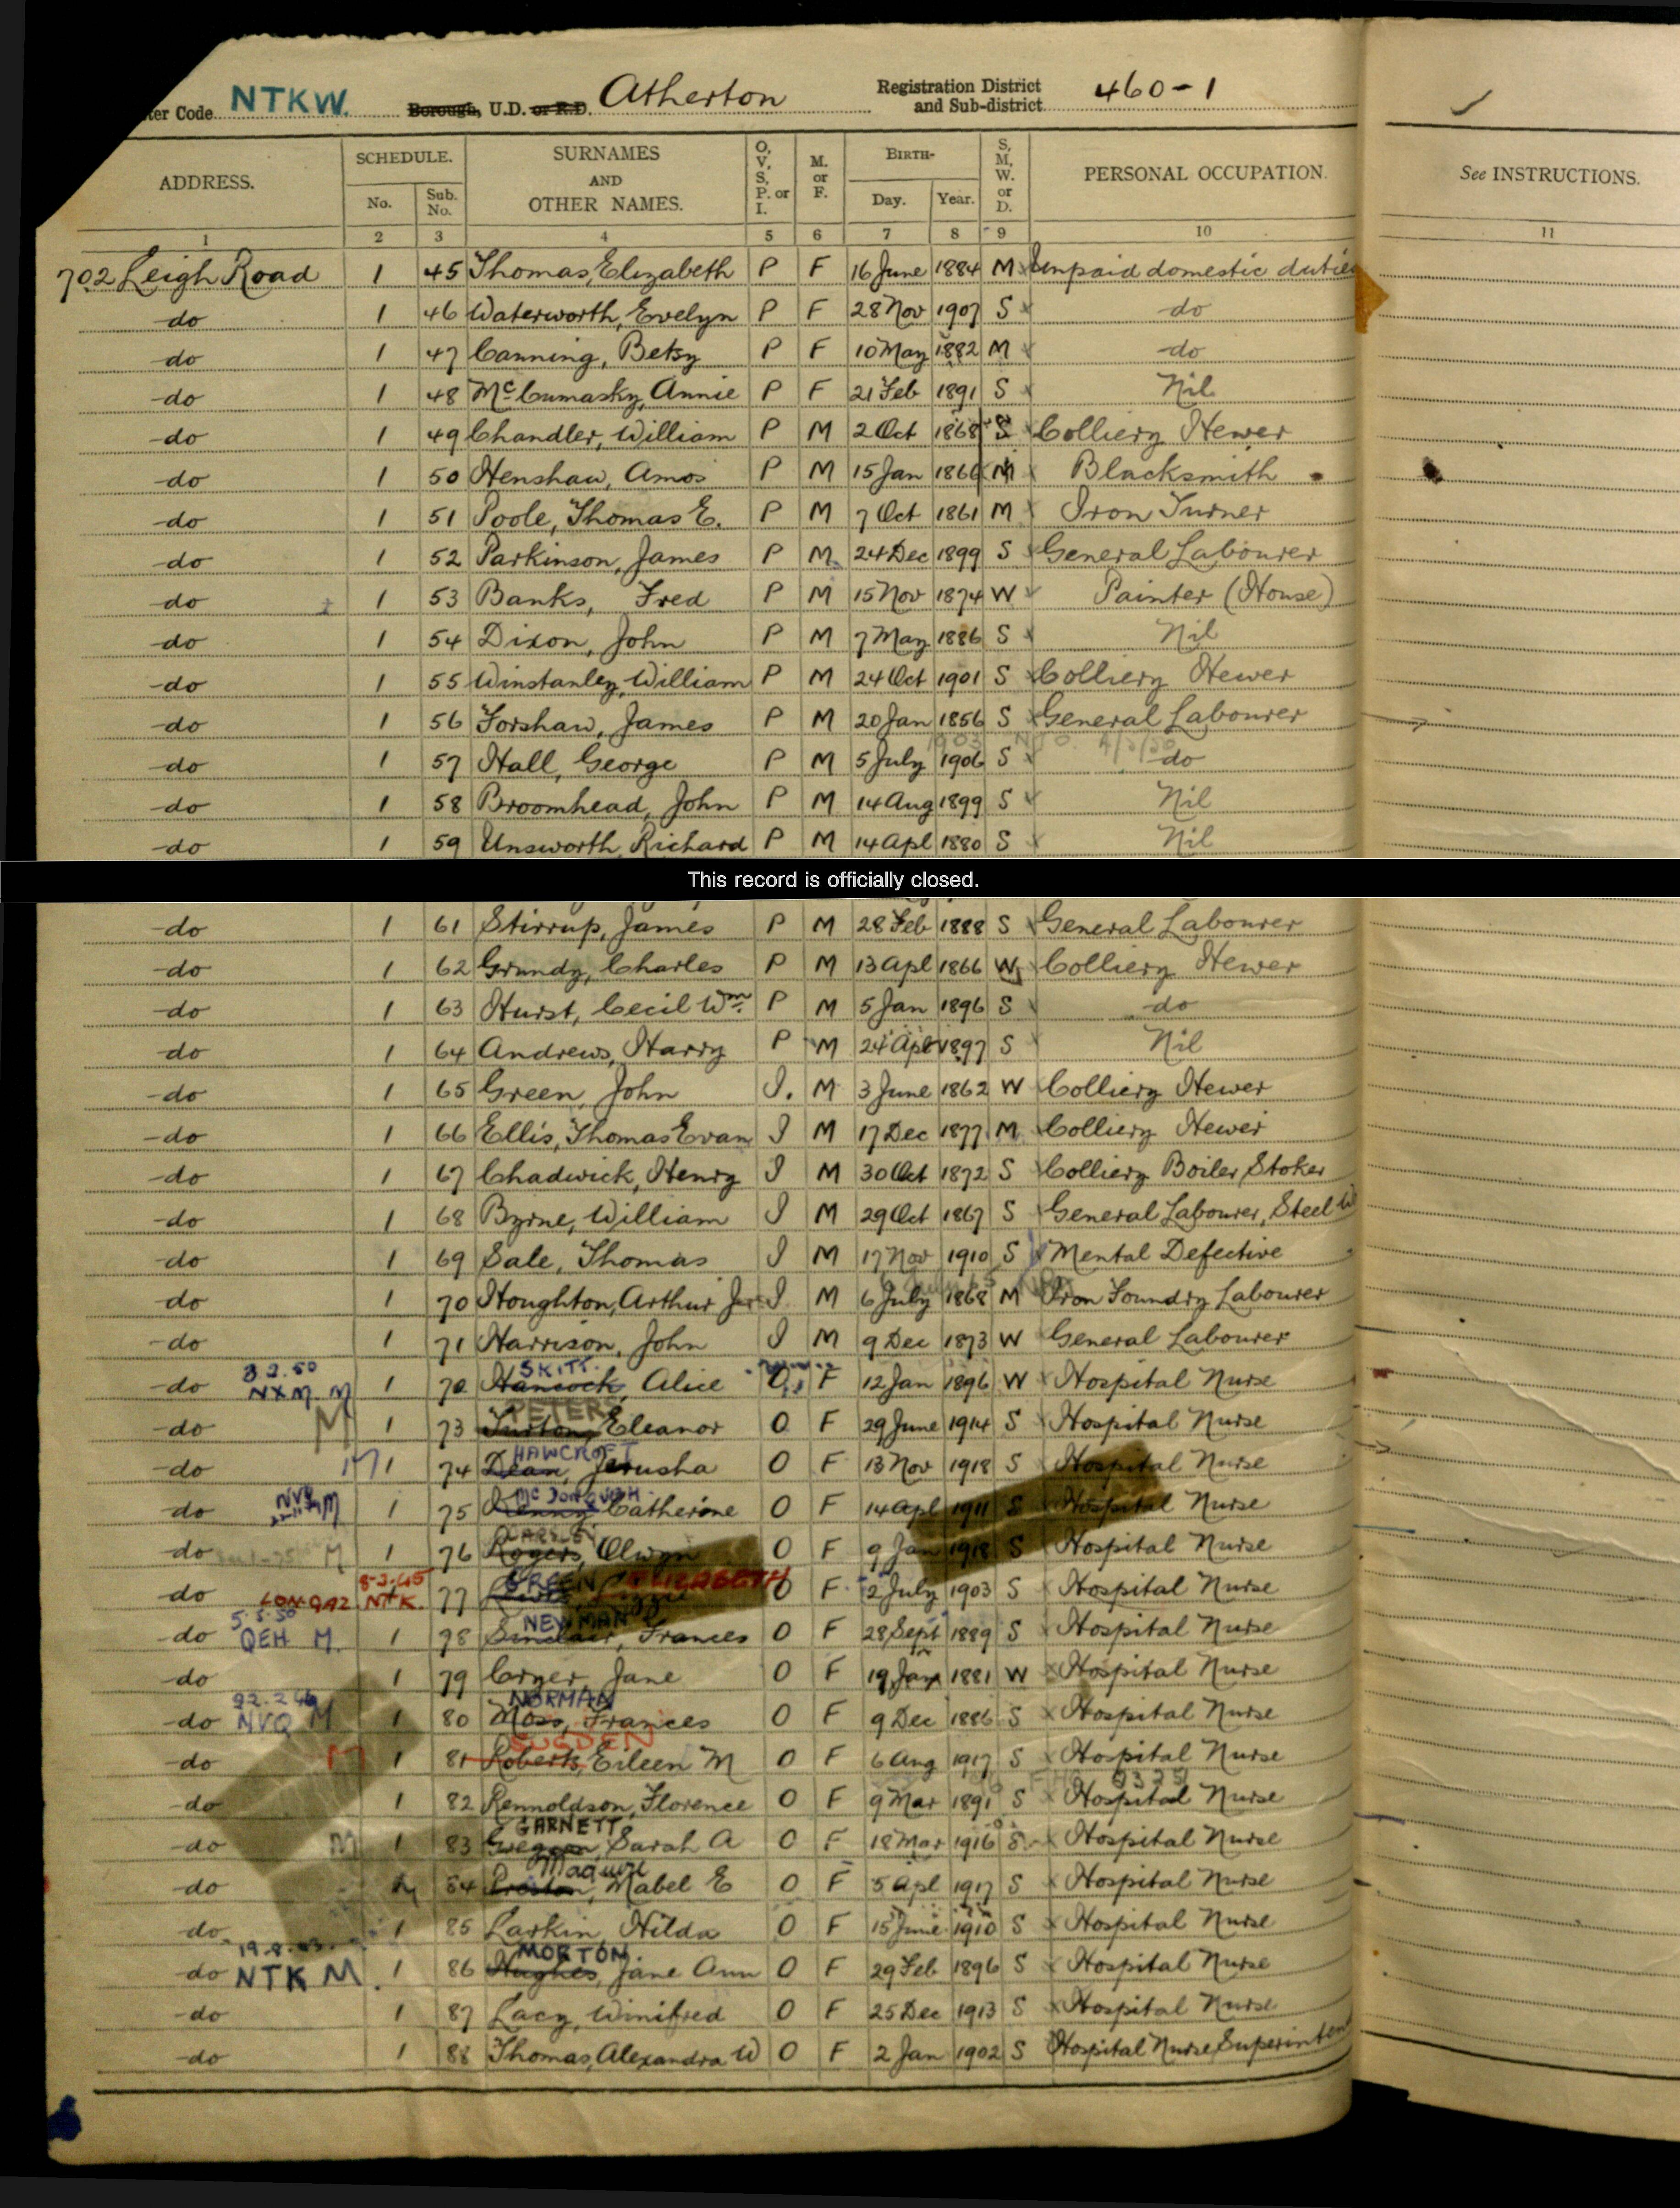 ter Code NTKW. Borough, U.D. or R.D. Atherton Registration District and Sub-district 460-1
ADDRESS. SCHEDULE. No. Sub. No. SURNAMES AND OTHER NAMES. O, V, S, P. or I. M. or F. BIRTH- Day. Year. S, M, W. or D. PERSONAL OCCUPATION. See INSTRUCTIONS.
1 2 3 4 5 6 7 8 9 10 11
702 Leigh Road 1 45 Thomas, Elizabeth P F 16 June 1884 M Unpaid domestic duties
do 1 46 Waterworth, Evelyn P F 28 Nov 1907 S do
do 1 47 Canning, Betsy P F 10 May 1882 M do
do 1 48 McCumasky, Annie P F 21 Feb 1891 S Nil
do 1 49 Chandler, William P M 2 Oct 1868 S Colliery Hewer
do 1 50 Henshaw, Amos P M 15 Jan 1866 M Blacksmith
do 1 51 Poole, Thomas E. P M 7 Oct 1861 M Iron Turner
do 1 52 Parkinson, James P M 24 Dec 1899 S General Labourer
do 1 53 Banks, Fred P M 15 Nov 1874 W Painter (House)
do 1 54 Dixon, John P M 7 May 1886 S Nil
do 1 55 Winstanley, William P M 24 Oct 1901 S Colliery Hewer
do 1 56 Forshaw, James P M 20 Jan 1856 S General Labourer
1903
do 1 57 Hall, George P M 5 July 1906 S do
do 1 58 Broomhead, John P M 14 Aug 1899 S Nil
do 1 59 Unsworth, Richard P M 14 Apl 1880 S Nil
This record is officially closed.
do 1 61 Stirrup, James P M 28 Feb 1888 S General Labourer
do 1 62 Grundy, Charles P M 13 Apl 1866 W Colliery Hewer
do 1 63 Hurst, Cecil Wm. P M 5 Jan 1896 S do
do 1 64 Andrews, Harry P M 24 Apl 1897 S Nil
do 1 65 Green, John I. M 3 June 1862 W Colliery Hewer
do 1 66 Ellis, Thomas Evan I M 17 Dec 1877 M Colliery Hewer
do 1 67 Chadwick, Henry I M 30 Oct 1872 S Colliery Boiler Stoker
do 1 68 Byrne, William I M 29 Oct 1867 S General Labourer, Steel W
do 1 69 Sale, Thomas I M 17 Nov 1910 S Mental Defective
do 1 70 Houghton, Arthur I M 6 July 1868 M Iron Foundry Labourer
do 1 71 Harrison, John I M 9 Dec 1873 W General Labourer
3.2.50 SKITT.
do NXM M 1 72 Hancock, Alice O F 12 Jan 1896 W Hospital Nurse
PETERS
do M 1 73 Turton, Eleanor O F 29 June 1914 S Hospital Nurse
HAWCROFT
do M 1 74 Dean, Jerusha O F 13 Nov 1918 S Hospital Nurse
McDONOUGH
do NVQ M 1 75 Kenny, Catherine O F 14 Apl 1911 S Hospital Nurse
do M 1 76 Rogers, Olwyn O F 9 Jan 1918 S Hospital Nurse
8-3-45 GREEN ELIZABETH
do NTK. 1 77 Lizzie O F 2 July 1903 S Hospital Nurse
5.5.50 NEWMAN
do QEH M. 1 78 Sinclair, Frances O F 28 Sept 1889 S Hospital Nurse
do 1 79 Cryer, Jane O F 19 Jan 1881 W Hospital Nurse
NORMAN
do NVQ M 1 80 Moss, Frances O F 9 Dec 1886 S Hospital Nurse
SUGDEN
do M 1 81 Roberts, Eileen M O F 6 Aug 1917 S Hospital Nurse
do 1 82 Rennoldson, Florence O F 9 Mar 1891 S Hospital Nurse
GARNETT
do M 1 83 Gregson, Sarah A O F 18 Mar 1916 S Hospital Nurse
Maguire
do M 84 Preston, Mabel E O F 5 Apl 1917 S Hospital Nurse
do 1 85 Larkin, Hilda O F 15 June 1910 S Hospital Nurse
MORTON
do NTK M. 1 86 Hughes, Jane Ann O F 29 Feb 1896 S Hospital Nurse
do 1 87 Lacy, Winifred O F 25 Dec 1913 S Hospital Nurse
do 1 88 Thomas, Alexandra W O F 2 Jan 1902 S Hospital Nurse Superintend